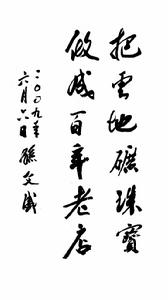 把云地矿珠寶
做成百年老店
二〇〇九年
六月六日孫文盛